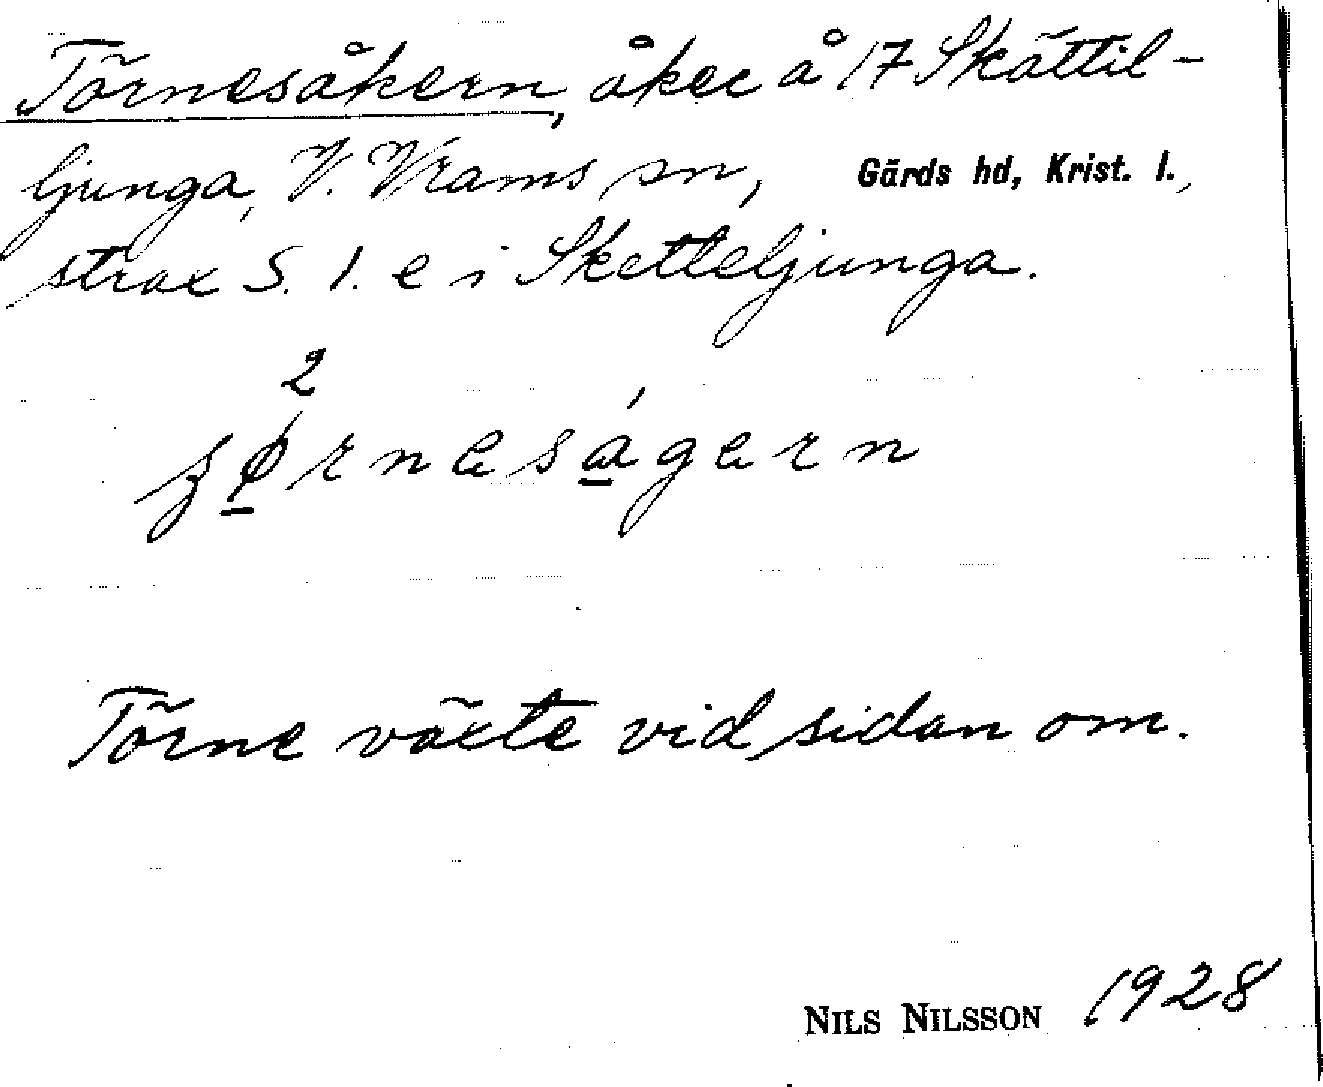 Törnesåkern, åker å 17 Skättil-
ljunga, V. Vrams sn, Gärds hd, Krist. l.,
strax S. l. e i Sketteljunga.
2
tø̱rnesá̱gern
Törne växte vid sidan om.
NILS NILSSON 1928